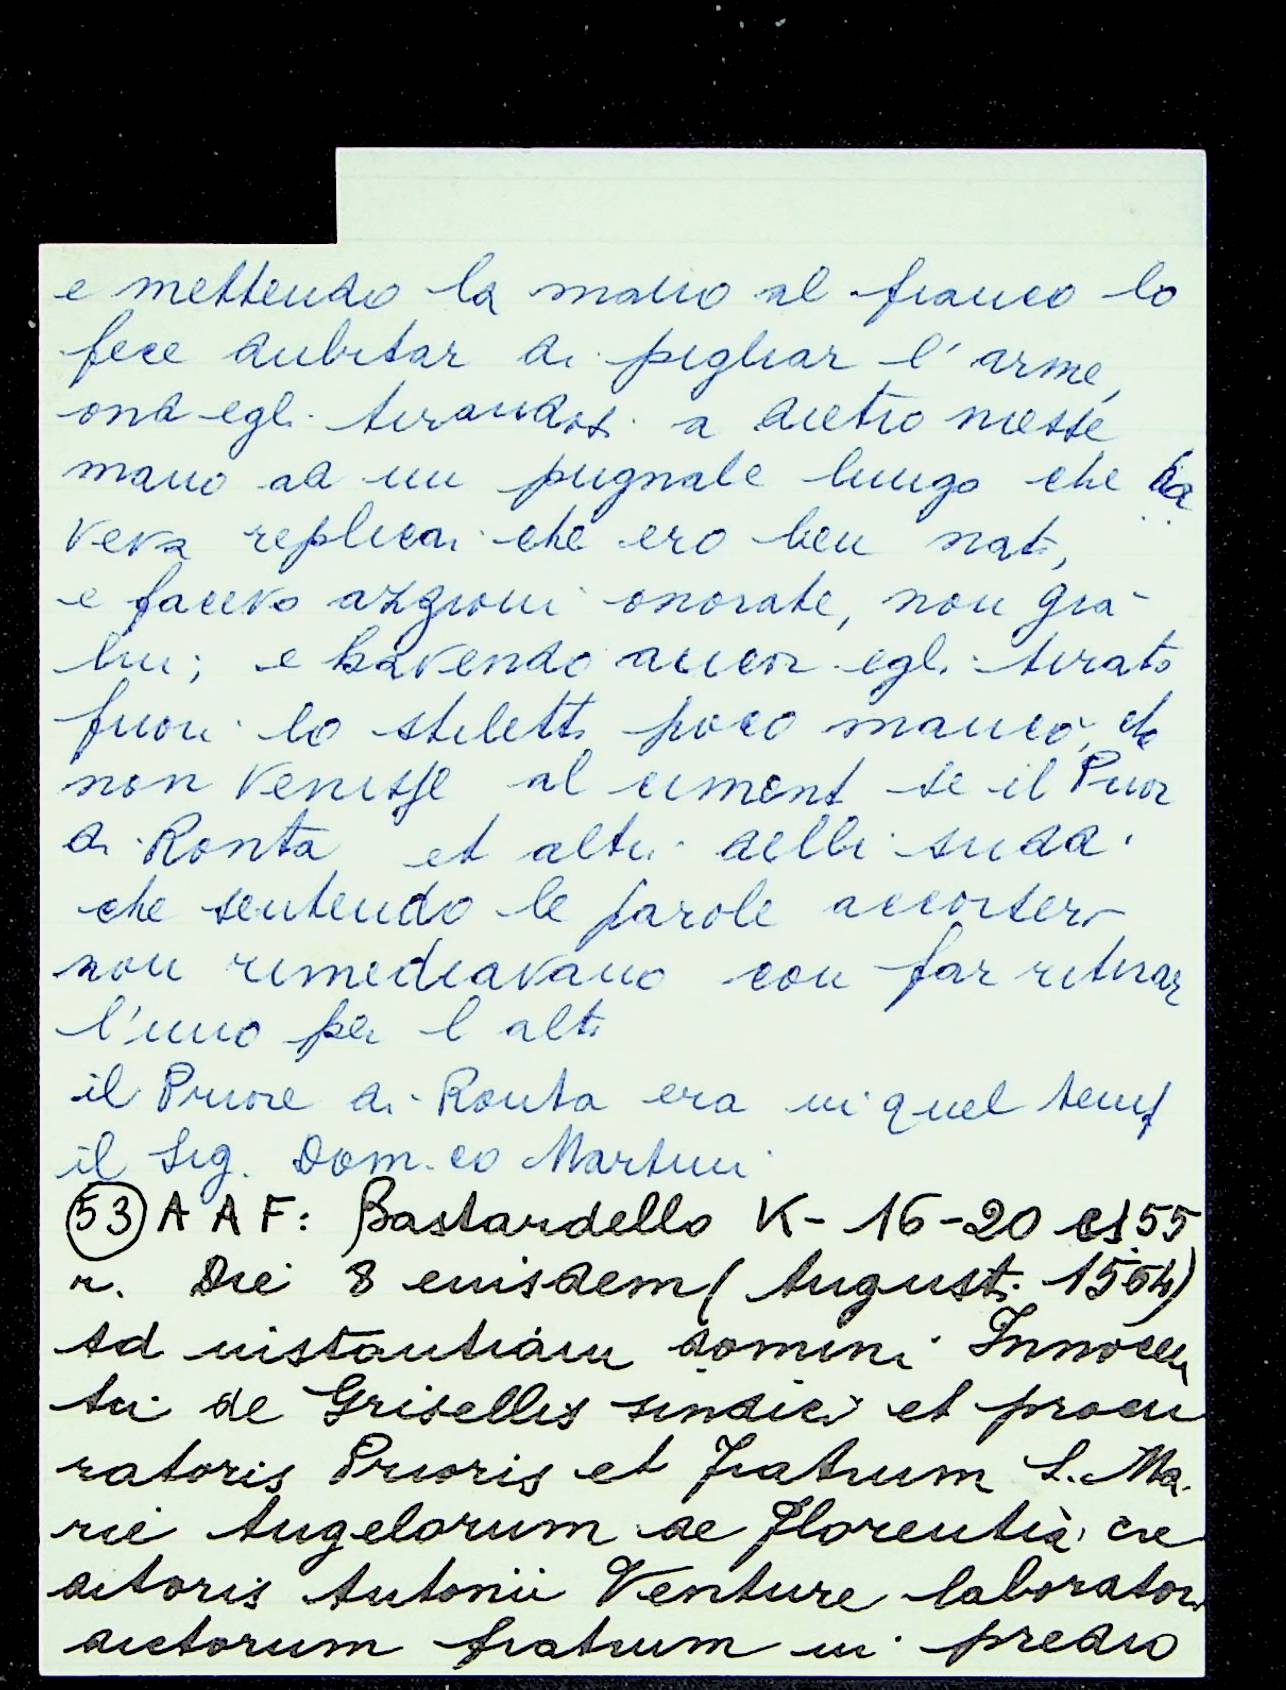 e mettendo la mano al fianco lo
fece dubitar di pigliar l'arme,
ond egli tirandosi a dietro messe
mano ad un pugnale lungo che ha
veva replicai che ero ben nato,
e facevo azzioni onorate, non già
lui; e havendo ancor egli tirato
fuori lo stiletto poco mancò, che
non venisse al cimento se il Prior
di Ronta et altri delli sudd.
che sentendo le parole accorsero
non rimediavano con far ritirar
l'uno per l altro
il Priore di Ronta era in quel tempo
il Sig. Dom.co Martini
(53) A A F: Bastardello K-16-20 c 155
r. Die 8 euisdem (Augusti 1564)
Ad instantiam domini Innocen
tii de Grisellis sindici et procu
ratoris Prioris et Fratrum S. Ma
rie Angelorum de Florentia cre
ditoris Antonii Venture laborator
dictorum fratrum in predio